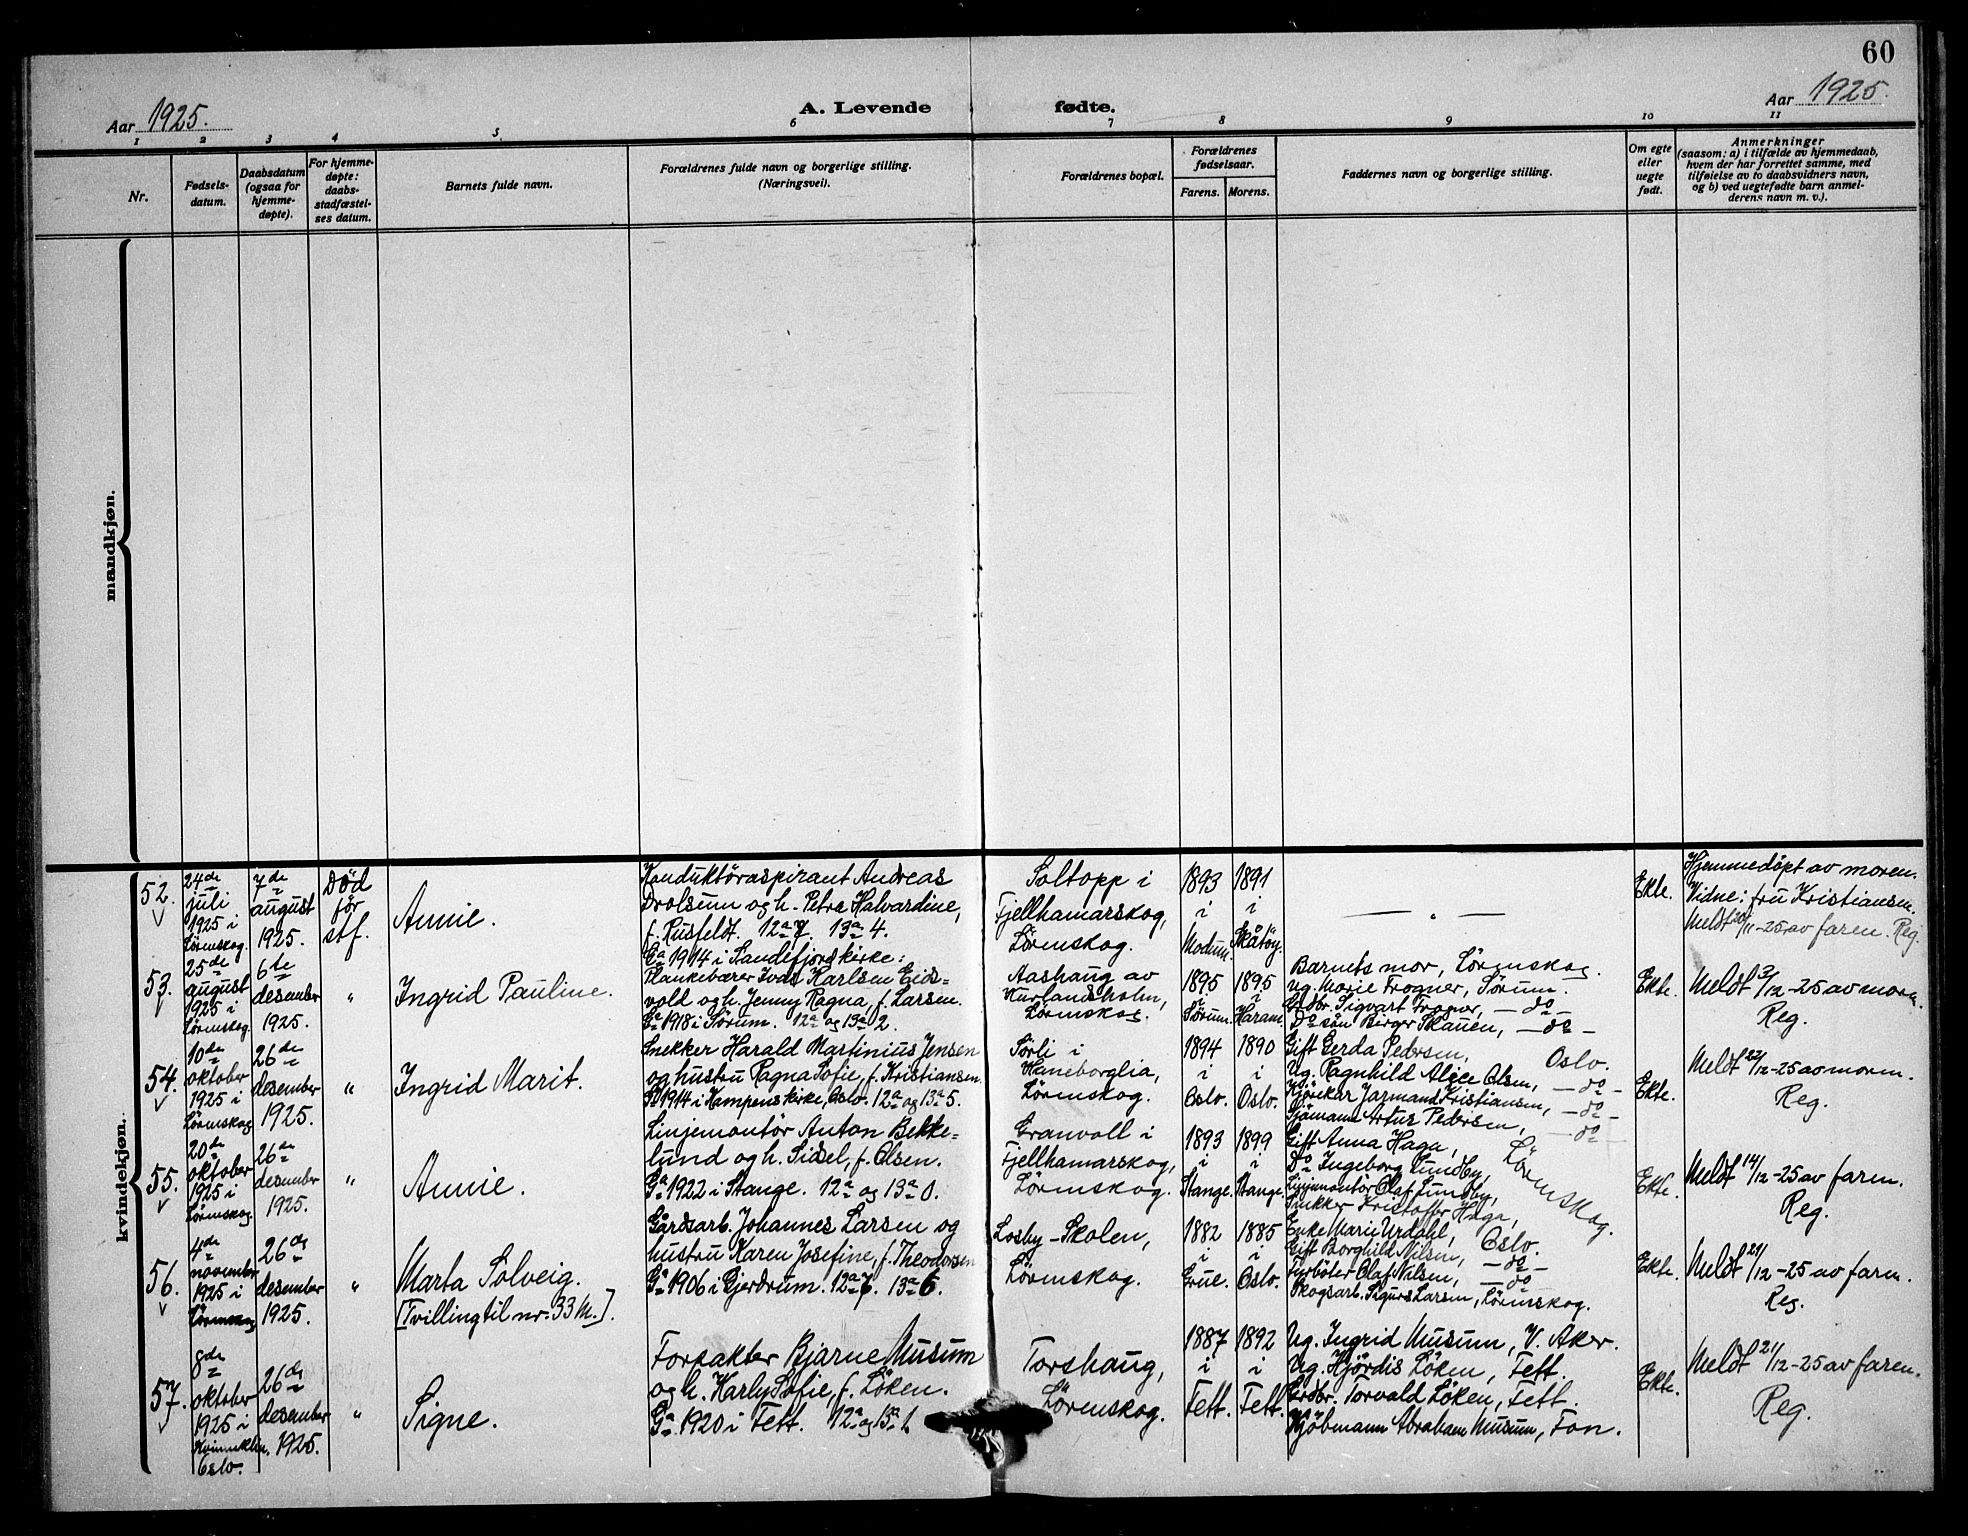 60
Aar 1925.
A. Levende fødte.
Aar 1925.
1 2 3 4 5 6 7 8 9 10 11
Nr.
Fødsels-
datum.
Daabsdatum
(ogsaa for
hjemme-
døpte).
For hjemme-
døpte:
daabs-
stadfæstel-
ses datum.
Barnets fulde navn.
Forældrenes fulde navn og borgerlige stilling.
(Næringsvei).
Forældrenes bopæl.
Forældrenes
fødselsaar.
Farens. Morens.
Faddernes navn og borgerlige stilling.
Om egte
eller
uegte
født.
Anmerkninger
(saasom: a) i tilfælde av hjemmedaab,
hvem der har forrettet samme, med
tilføielse av to daabsvidners navn,
og b) ved uegtefødte barn anmel-
derens navn m. v.).
mandkjøn.
kvindekjøn.
52.
24de
juli
1925 i
Lørenskog.
7de
august
1925.
Död
før
stf.
Annie.
Konduktöraspirant Andreas
Drolsum og h. Petra Halvardine,
f. Rusfeldt. 12a 7. 13a 4.
Ga 1914 i Sandefjord kirke:
Soltopp i
Fjellhamarskog,
Lörenskog.
1893
i
Modum.
1891
i
Skåtöy.
— „ —
Ekte.
Hjemmedöpt av moren.
Vidne: fru Kristiansen.
Meldt 20/11-25 av faren. Reg.
53.
25de
august
1925 i
Lørenskog.
6te
desember
1925.
"
Ingrid Pauline.
Plankebærer Ivar Karlsen Eids-
vold og h. Jenny Ragna, f. Larsen.
Ga 1918 i Sørum. 12a og 13a 2.
Aashaug av
Kurlandsholm,
Lörenskog.
1895
i
Sørum.
1895
i
Haram.
Barnets mor, Lörenskog.
Ug. Marie Frogner, Sørum.
Gdbr. Sigvart Frogner, — do —
Do sön Birger Skauen, — do —
Ekte.
Meldt 3/12-25 av moren.
Reg.
54.
10de
oktober
1925 i
Lørenskog
26de
desember
1925.
"
Ingrid Marit.
Snekker Harald Martinius Jensen
og hustru Ragna Sofie, f. Kristiansen.
Ga 1914 i Kampens kirke, Oslo. 12a og 13a 5.
Sörli i
Haneborglia,
Lörenskog.
1894
i
Oslo.
1890
i
Oslo.
Gift Gerda Pedersen, Oslo.
Ug. Ragnhild Alice Olsen, — do —
Kjörekar Jarmand Kristiansen, — do —
Sjömann Artur Pedersen, — do —
Ekte.
Meldt 22/12-25 av moren.
Reg.
55.
20de
oktober
1925 i
Lørenskog.
26de
desember
1925.
"
Annie.
Linjemontør Anton Bekke-
lund og h. Sidsel, f. Olsen.
Ga 1922 i Stange. 12a og 13a 0.
Granvoll i
Fjellhamarskog,
Lörenskog.
1893
i
Stange.
1899
i
Stange.
Gift Anna Haga,
Do Ingeborg Lundby,
Linjemontör Olaf Lundby,
Snekker Kristoffer Haga,
Lörenskog.
Ekte.
Meldt 14/12-25 av faren.
Reg.
56.
4de
november
1925 i
Lørenskog
26de
desember
1925.
"
Marta Solveig.
[Tvilling til nr. 33 M.].
Gårdsarb. Johannes Larsen og
hustru Karen Josefine, f. Theodorsen
Ga 1906 i Gjerdrum. 12a 7. 13a 6.
Losby-Skolen,
Lörenskog.
1882
i
Grue.
1885
i
Oslo.
Enke Marie Urdahl, Oslo.
Gift Borghild Nilsen, — do —
Fyrböter Olaf Nilsen, — do
Skogsarb. Sigurd Larsen, Lörenskog.
Ekte.
Meldt 21/12-25 av faren.
Reg.
57.
8de
oktober
1925 i
Kvinneklin.
Oslo.
26de
desember
1925.
"
Signe.
Forpakter Bjarne Musum
og h. Karly Sofie, f. Löken.
Ga 1920 i Fett. 12a og 13a 1.
Torshaug,
Lörenskog.
1887
i
Fett.
1892
i
Fett.
Ug. Ingrid Musum, V. Aker.
Ug. Hjördis Löken, Fett.
Grdbr. Torvald Löken, Fett.
Kjöbmann Abraham Musum, Fon.
Ekte.
Meldt 21/12-25 av faren.
Reg.